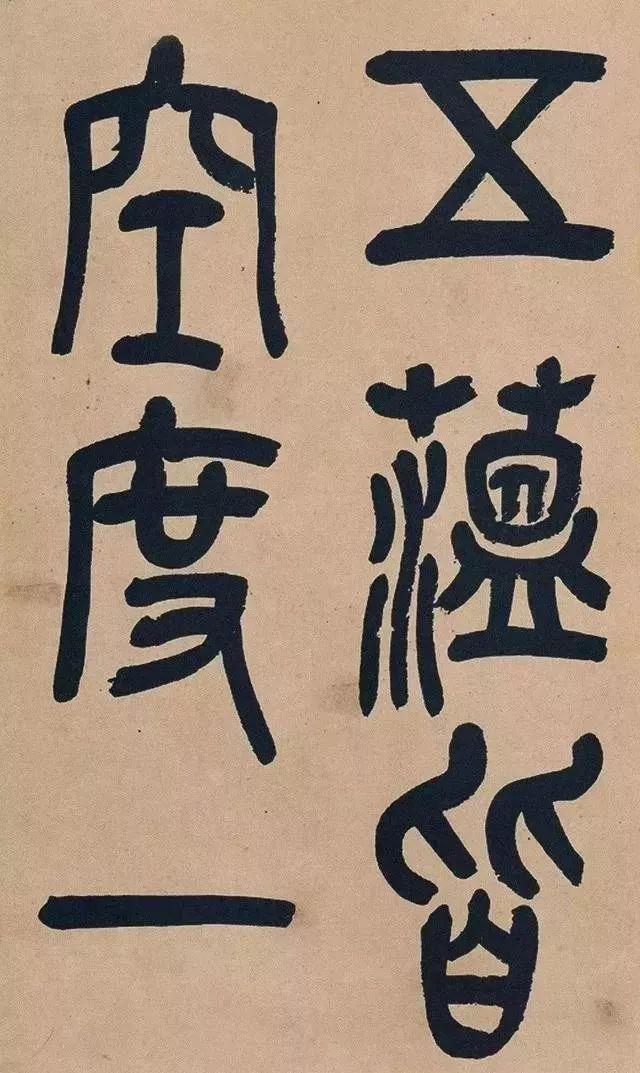 五蕰皆
空度一